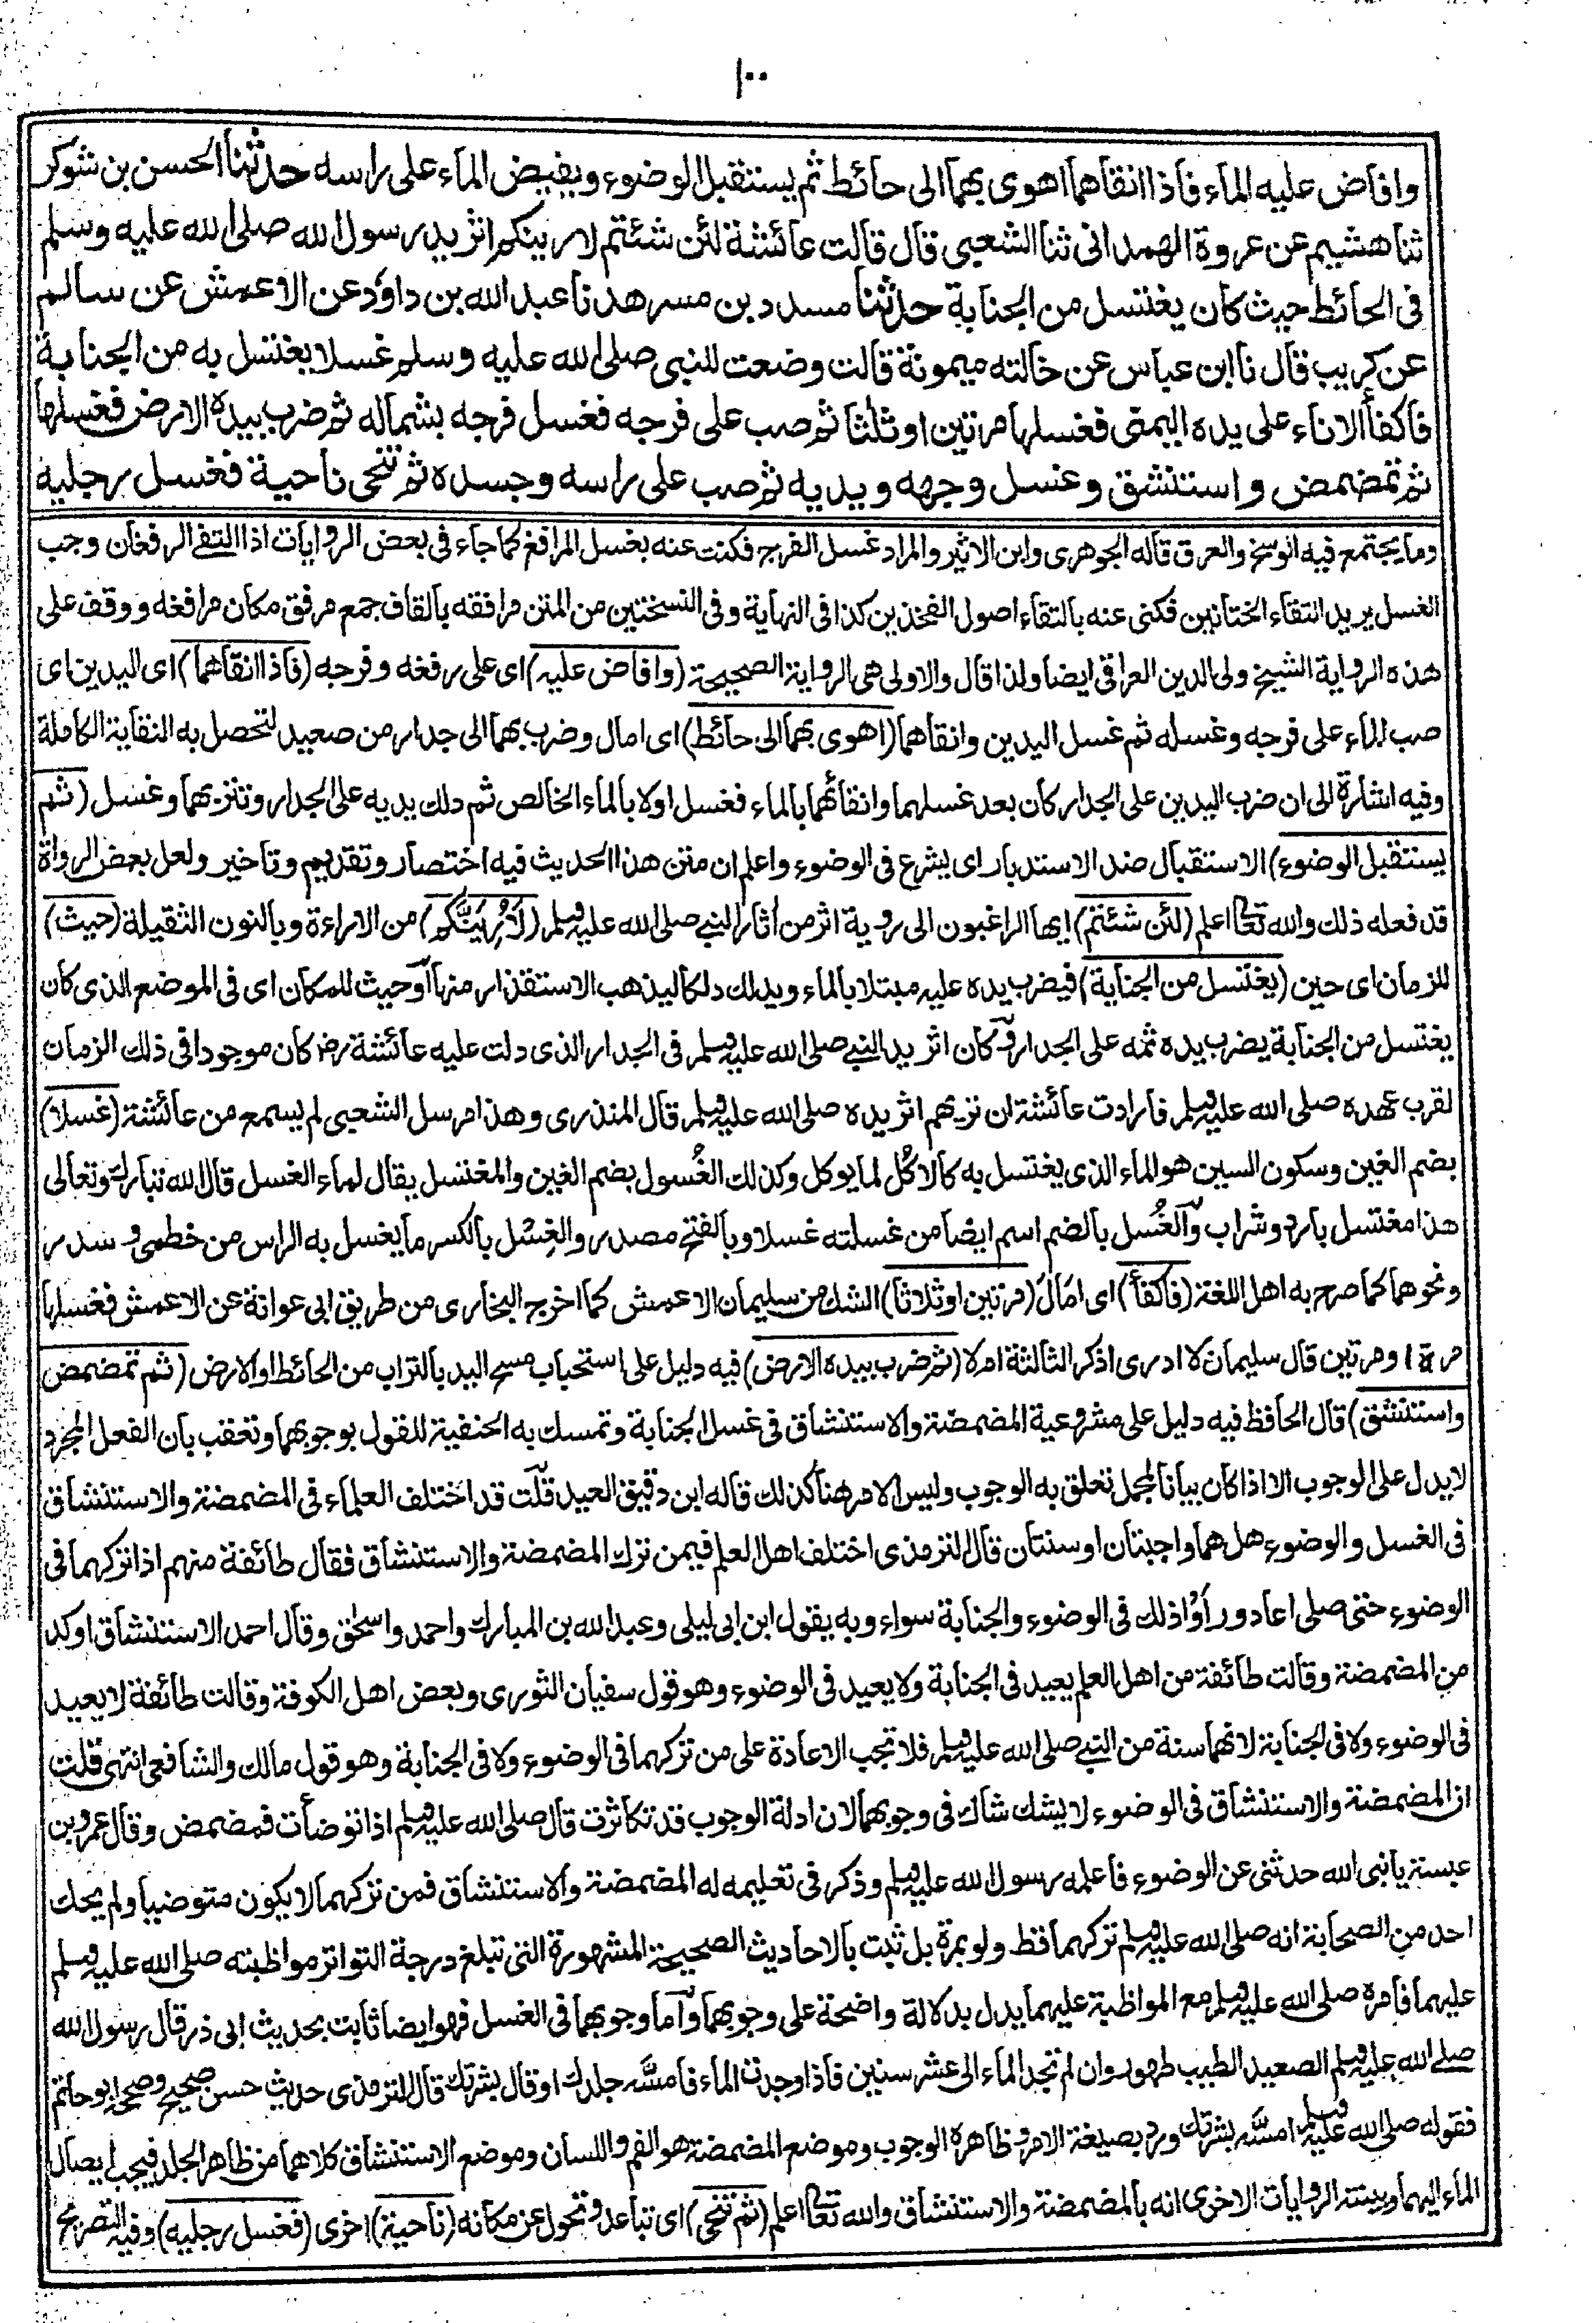 ١٠٠
وافاض عليه الماء فاذا انقاهما اهوى بهما الى حائط ثم يستقبل الوضوء ويفيض الماء على راسه حدثنا الحسن بن شوكر
ثنا هشيم عن عروة الهمدانى ثنا الشعبى قال قالت عائشة لئن شئتم لارينكم اثر يد رسول الله صلى الله عليه وسلم
فى الحائط حيث كان يغتسل من الجنابة حدثنا مسدد بن مسرهد نا عبد الله بن داود عن الاعمش عن سالم
عن كريب قال نا ابن عباس عن خالته ميمونة قالت وضعت للنبى صلى الله عليه وسلم غسلا يغتسل به من الجنابة
فاكفأ الاناء على يده اليمنى فغسلها مرتين او ثلثا ثم صب على فرجه فغسل فرجه بشماله ثم ضرب بيده الارض فغسلها
ثم تمضمض واستنشق وغسل وجهه ويديه ثم صب على راسه وجسده ثم تنحى ناحية فغسل رجليه
وما يجتمع فيه الوسخ والعرق قاله الجوهرى وابن الاثير والمراد غسل الفرج فكنت عنه بغسل المرافغ كما جاء فى بعض الروايات اذا التقى الرفغان وجب
الغسل يريد التقاء الختانين فكنى عنه بالتقاء اصول الفخذين كذا فى النهاية وفى النسختين من المتن مرافقه بالقاف جمع مرفق مكان مرافغه ووقف على
هذه الرواية الشيخ ولى الدين العراقى ايضا ولذا قال والاولى هى الرواية الصحيحة (وافاض عليه) اى على رفغه وفرجه (فاذا انقاهما) اى اليدين اى
صب الماء على فرجه وغسله ثم غسل اليدين وانقاهما (اهوى بهما الى حائط) اى امال وضرب بهما الى جدار من صعيد لتحصل به النقاية الكاملة
وفيه اشارة الى ان ضرب اليدين على الجدار كان بعد غسلهما وانقائهما بالماء فغسل اولا بالماء الخالص ثم دلك يديه على الجدار وتتربهما وغسل (ثم
يستقبل الوضوء) الاستقبال ضد الاستدبار اى يشرع فى الوضوء واعلم ان متن هذا الحديث فيه اختصار وتقديم وتاخير ولعل بعض الرواة
قد فعله ذلك والله تعالى اعلم (لئن شئتم) ايها الراغبون الى روية اثر من أثار النبى صلى الله عليه وسلم (لَأُرِيَنَّكُم) من الاراءة وبالنون الثقيلة (حيث)
للزمان اى حين (يغتسل من الجنابة) فيضرب يده عليه مبتلا بالماء ويدلك دلكا ليذهب الاستقذار منها أو حيث للمكان اى فى الموضع الذى كان
يغتسل من الجنابة يضرب يده ثمه على الجدار وكان اثر يد النبى صلى الله عليه وسلم فى الجدار الذى دلت عليه عائشة رضـ كان موجودا فى ذلك الزمان
لقرب عهده صلى الله عليه وسلم فارادت عائشة ان تريهم اثر يده صلى الله عليه وسلم قال المنذرى وهذا مرسل الشعبى لم يسمع من عائشة (غسلا)
بضم الغين وسكون السين هو الماء الذى يغتسل به كالاكُل لما يوكل وكذلك الغُسول بضم الغين والمغتسل يقال لماء الغسل قال الله تبارك وتعالى
هذا مغتسل بارد وشراب والغُسل بالضم اسم ايضا من غسلته غسلا وبالفتح مصدر والغِسْل بالكسر ما يغسل به الراس من خطمى وسدر
ونحوهما كما صرح به اهل اللغة (فاكفأ) اى امَالَ (مرتين او ثلاثا) الشك من سليمان الاعمش كما اخرج البخارى من طريق ابى عوانة عن الاعمش فغسلها
مرة او مرتين قال سليمان لا ادرى اذكر الثالثة ام لا (ثم ضرب بيده الارض) فيه دليل على استحباب مسح اليد بالتراب من الحائط او الارض (ثم تمضمض
واستنشق) قال الحافظ فيه دليل على مشروعية المضمضة والاستنشاق فى غسل الجنابة وتمسك به الحنفية للقول بوجوبهما وتعقب بان الفعل المجرد
لا يدل على الوجوب الا اذا كان بيانا لمجمل تعلق به الوجوب وليس الامر هنا كذلك قاله ابن دقيق العيد قلت قد اختلف العلماء فى المضمضة والاستنشاق
فى الغسل والوضوء هل هما واجبتان او سنتان قال الترمذى اختلف اهل العلم فيمن ترك المضمضة والاستنشاق فقال طائفة منهم اذا تركهما فى
الوضوء حتى صلى اعاد ورأوا ذلك فى الوضوء والجنابة سواء وبه يقول ابن ابى ليلى وعبد الله بن المبارك واحمد واسحق وقال احمد الاستنشاق اوكد
من المضمضة وقالت طائفة من اهل العلم يعيد فى الجنابة ولا يعيد فى الوضوء وهو قول سفيان الثورى وبعض اهل الكوفة وقالت طائفة لا يعيد
فى الوضوء ولا فى الجنابة لانهما سنة من النبى صلى الله عليه وسلم فلا تجب الاعادة على من تركهما فى الوضوء ولا فى الجنابة وهو قول مالك والشافعى انتهى قلت
ان المضمضة والاستنشاق فى الوضوء لا يشك شاك فى وجوبهما لان ادلة الوجوب قد تكاثرت قال صلى الله عليه وسلم اذا توضأت فمضمض وقال عمرو بن
عبسة يا نبى الله حدثنى عن الوضوء فاعلمه رسول الله عليه وسلم وذكر فى تعليمه له المضمضة والاستنشاق فمن تركهما لا يكون متوضيا ولم يحك
احد من الصحابة انه صلى الله عليه وسلم تركهما قط ولو بمرة بل ثبت بالاحاديث الصحيحة المشهورة التى تبلغ درجة التواتر مواظبته صلى الله عليه وسلم
عليهما فامره صلى الله عليه وسلم مع المواظبة عليهما يدل بدلالة واضحة على وجوبهما وأما وجوبهما فى الغسل فهو ايضا ثابت بحديث ابى ذر قال رسول الله
صلى الله عليه وسلم الصعيد الطيب طهور وان لم تجد الماء الى عشر سنين فاذا وجدت الماء فامسَّه جلدك او قال بشرتك قال الترمذى حديث حسن صحيح وصححه ابو حاتم
فقوله صلى الله عليه وسلم امسَّه بشرتك ورد بصيغة الامر وظاهره الوجوب وموضع المضمضة هو الفم واللسان وموضع الاستنشاق كلاهما من ظاهر الجلد فيجب ايصال
الماء اليهما وبينته الروايات الاخرى انه بالمضمضة والاستنشاق والله تعالى اعلم (ثم تنحى) اى تباعد وتحول عن مكانه (ناحية) اخرى (فغسل رجليه) وفيه التصريح